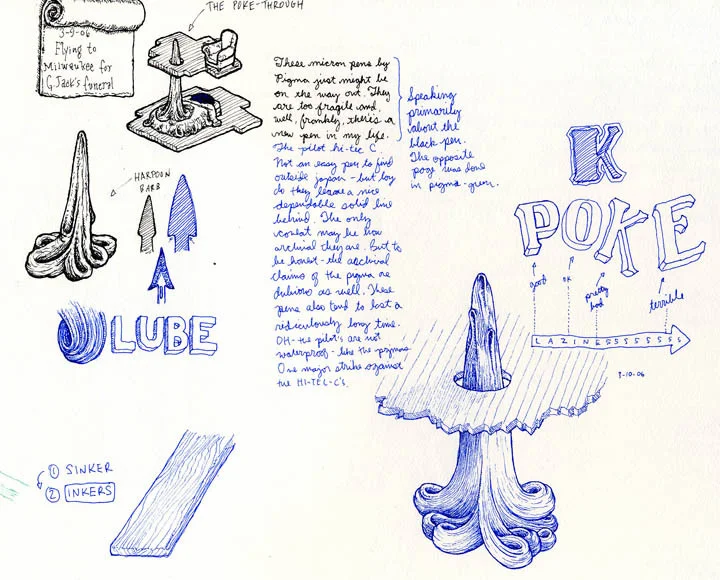 THE POKE-THROUGH
3-9-06
Flying to
Milwaukee for
G. Jack's funeral
These micron pens by
Pigma just might be
on the way out. They
are too fragile and
well, frankly, there's a
new pen in my life.
The pilot hi-tec C.
Not an easy pen to find
outside japan - but boy
do they leave a nice
dependable solid line
behind. The only
caveat may be how
archival they are. But to
be honest - the archival
claims of the pigma are
dubious as well. These
pens also tend to last a
rediculously long time.
OH - the pilot's are not
waterproof - like the pigmas.
One major strike against
the HI-TEC-C's.
Speaking
primarily
about the
black pen.
The opposite
page was done
in pigma-green.
HARPOON
BARB
LUBE
① SINKER
② INKERS
K
POKE
good
ok
pretty
bad
terrible
LAZINESSSSSSSSS
3-10-06